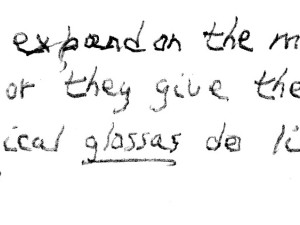 expand on the m
or they give the
ical glossas do li